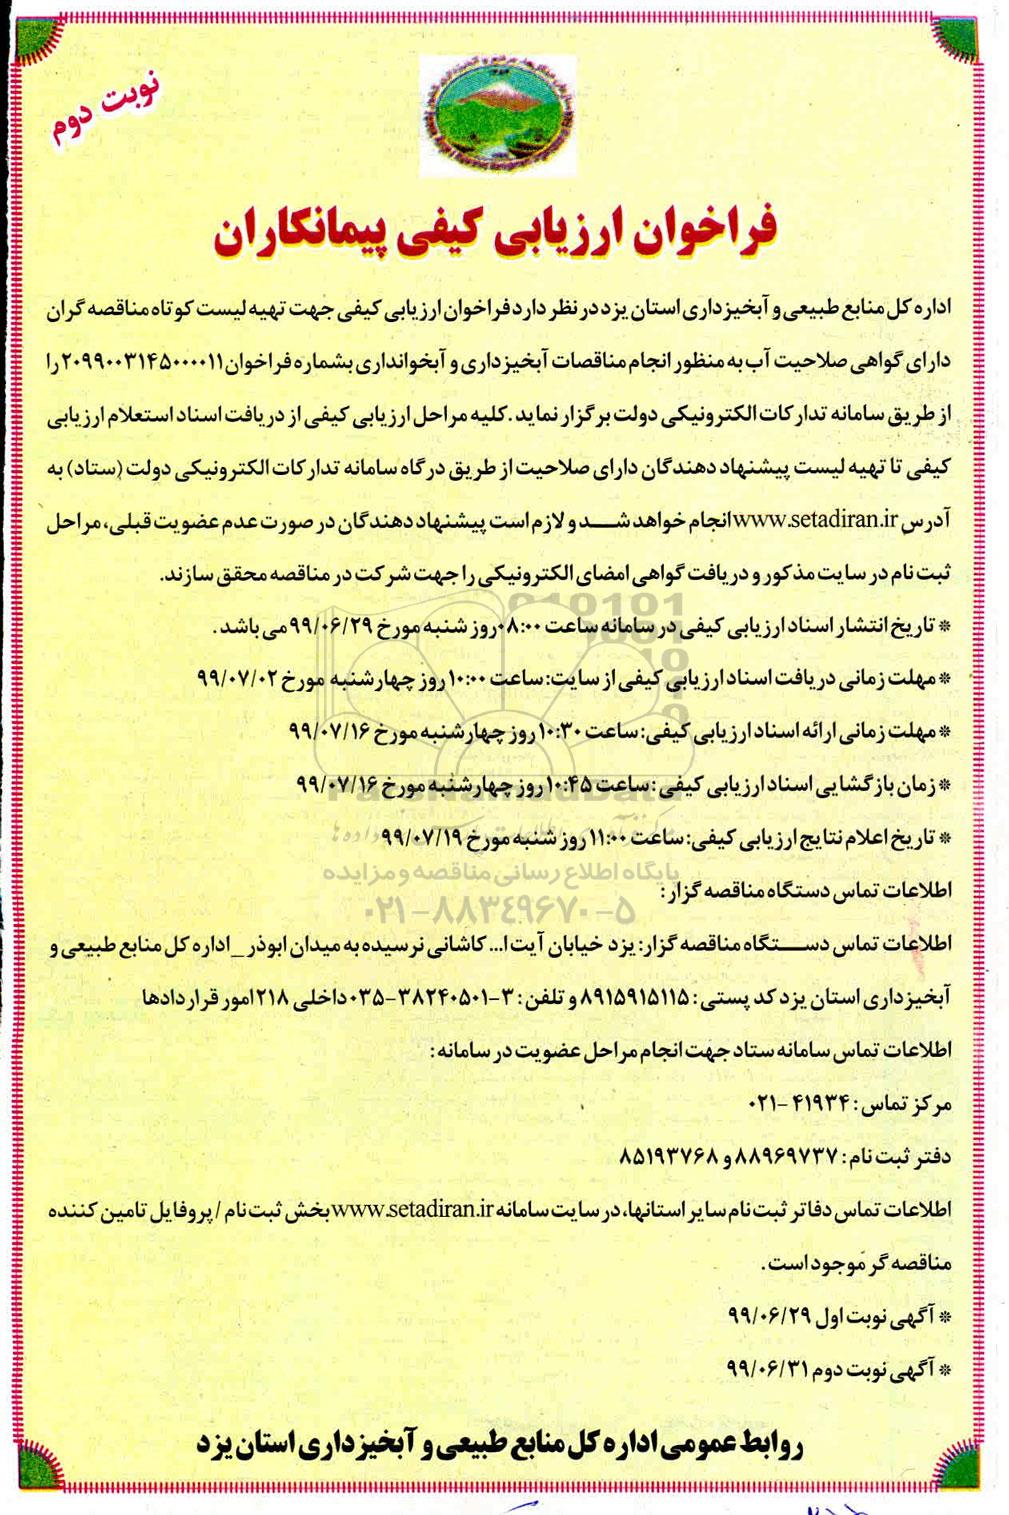 نوبت دوم
فراخوان ارزیابی کیفی پیمانکاران
اداره کل منابع طبیعی و آبخیزداری استان یزد در نظر دارد فراخوان ارزیابی کیفی جهت تهیه لیست کوتاه مناقصه گران
دارای گواهی صلاحیت آب به منظور انجام مناقصات آبخیزداری و آبخوانداری بشماره فراخوان ۲۰۹۹۰۰۳۱۴۵۰۰۰۰۱۱ را
از طریق سامانه تدارکات الکترونیکی دولت برگزار نماید. کلیه مراحل ارزیابی کیفی از دریافت اسناد استعلام ارزیابی
کیفی تا تهیه لیست پیشنهاد دهندگان دارای صلاحیت از طریق درگاه سامانه تدارکات الکترونیکی دولت (ستاد) به
آدرس www.setadiran.ir انجام خواهد شد و لازم است پیشنهاد دهندگان در صورت عدم عضویت قبلی، مراحل
ثبت نام در سایت مذکور و دریافت گواهی امضای الکترونیکی را جهت شرکت در مناقصه محقق سازند.
* تاریخ انتشار اسناد ارزیابی کیفی در سامانه ساعت ۰۸:۰۰ روز شنبه مورخ ۹۹/۰۶/۲۹ می باشد.
* مهلت زمانی دریافت اسناد ارزیابی کیفی از سایت: ساعت ۱۰:۰۰ روز چهارشنبه مورخ ۹۹/۰۷/۰۲
* مهلت زمانی ارائه اسناد ارزیابی کیفی: ساعت ۱۰:۳۰ روز چهارشنبه مورخ ۹۹/۰۷/۱۶
* زمان بازگشایی اسناد ارزیابی کیفی: ساعت ۱۰:۴۵ روز چهارشنبه مورخ ۹۹/۰۷/۱۶
* تاریخ اعلام نتایج ارزیابی کیفی: ساعت ۱۱:۰۰ روز شنبه مورخ ۹۹/۰۷/۱۹
پایگاه اطلاع رسانی مناقصه و مزایده
اطلاعات تماس دستگاه مناقصه گزار:
۰۲۱-۸۸۳۴۹۶۷۰-۵
اطلاعات تماس دستگاه مناقصه گزار: یزد خیابان آیت ا... کاشانی نرسیده به میدان ابوذر _ اداره کل منابع طبیعی و
آبخیزداری استان یزد کد پستی: ۸۹۱۵۹۱۵۱۱۵ و تلفن: ۳-۳۸۲۴۰۵۰۱-۰۳۵ داخلی ۲۱۸ امور قراردادها
اطلاعات تماس سامانه ستاد جهت انجام مراحل عضویت در سامانه:
مرکز تماس: ۴۱۹۳۴-۰۲۱
دفتر ثبت نام: ۸۸۹۶۹۷۳۷ و ۸۵۱۹۳۷۶۸
اطلاعات تماس دفاتر ثبت نام سایر استانها، در سایت سامانه www.setadiran.ir بخش ثبت نام / پروفایل تامین کننده
مناقصه گر موجود است.
* آگهی نوبت اول ۹۹/۰۶/۲۹
* آگهی نوبت دوم ۹۹/۰۶/۳۱
روابط عمومی اداره کل منابع طبیعی و آبخیزداری استان یزد